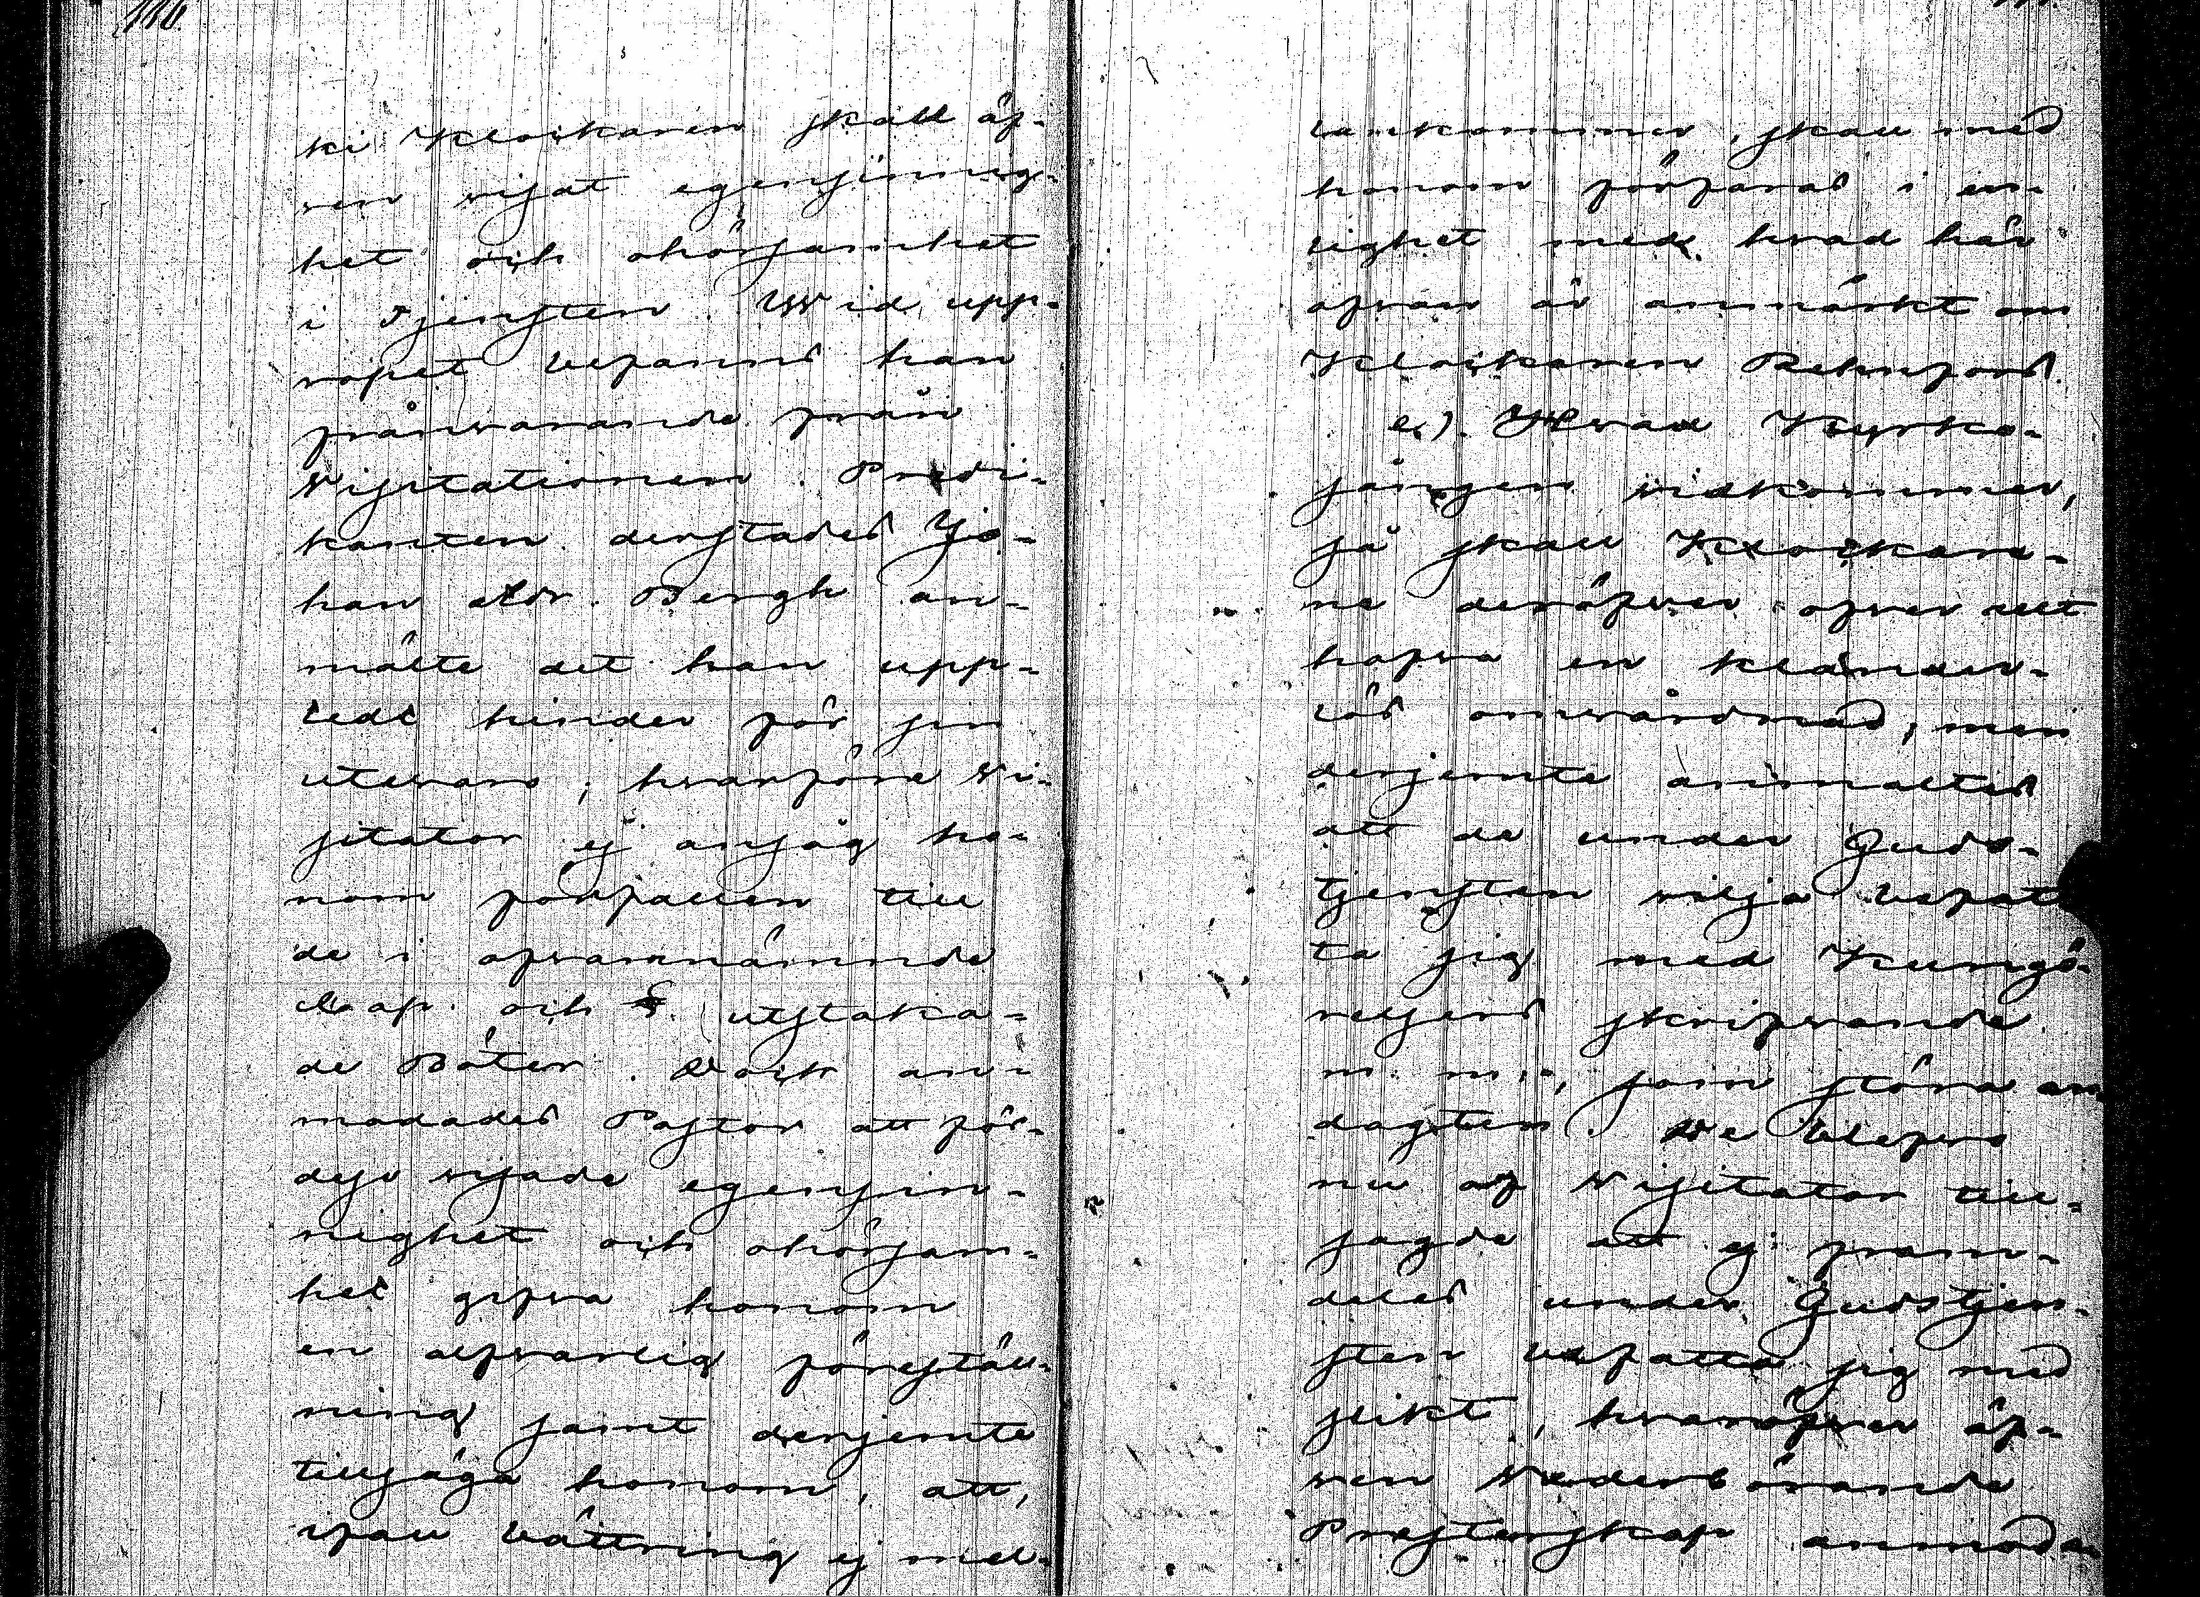 116.
ki Klockaren skall äf-
ven visat egensinnig-
het och ohörsamhet
i Tjensten. Wid upp-
ropet befanns han
frånvarande från
Visitationen. Predi-
kanten derstädes Jo-
han Adr. Bergh an-
mälte det han upp-
tedt hinder för sin
utevaro; hvarföre Vi-
sitator ej ansåg ho-
nom förfallen till
de i ofvannämnde
Cap. och §. utstaka-
de Böter. Dock an-
modades Pastor att för
dess visade egensin-
nighet och ohörsam-
het gifva honom
en alfvarlig föreställ-
ning samt derjemte
tillsäga honom, att,
ifall bättring ej mel-
lankommer, skall med
honom förfaras i en-
lighet med hvad här
ofvan är anmärkt om
Klockaren Rehnfors.
e). Hvad Kyrko-
sången vidkommer,
så skall Klockare-
ne deröfver öfver allt
hafva en klander-
lös omvårdnad; men
derjemte anmältes
att de under Guds-
tjensten vilja befat-
ta sig med Kungö-
relsers skrifvande
m. m., som störa an
dagten. De blefvo
nu af Visitator till-
sagde att ej fram-
deles under Gudstjen-
sten befatta sig med
slikt, hvaröfver äf-
ven Vederbörande
Presterskap anmodas